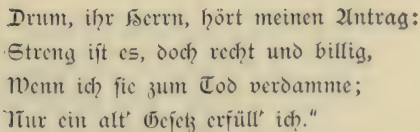 Drum, ihr Herrn, hört meinen Antrag:
Streng ist es, doch recht und billig,
Wenn ich sie zum Tod verdamme;
Nur ein alt' Gesetz erfüll' ich."